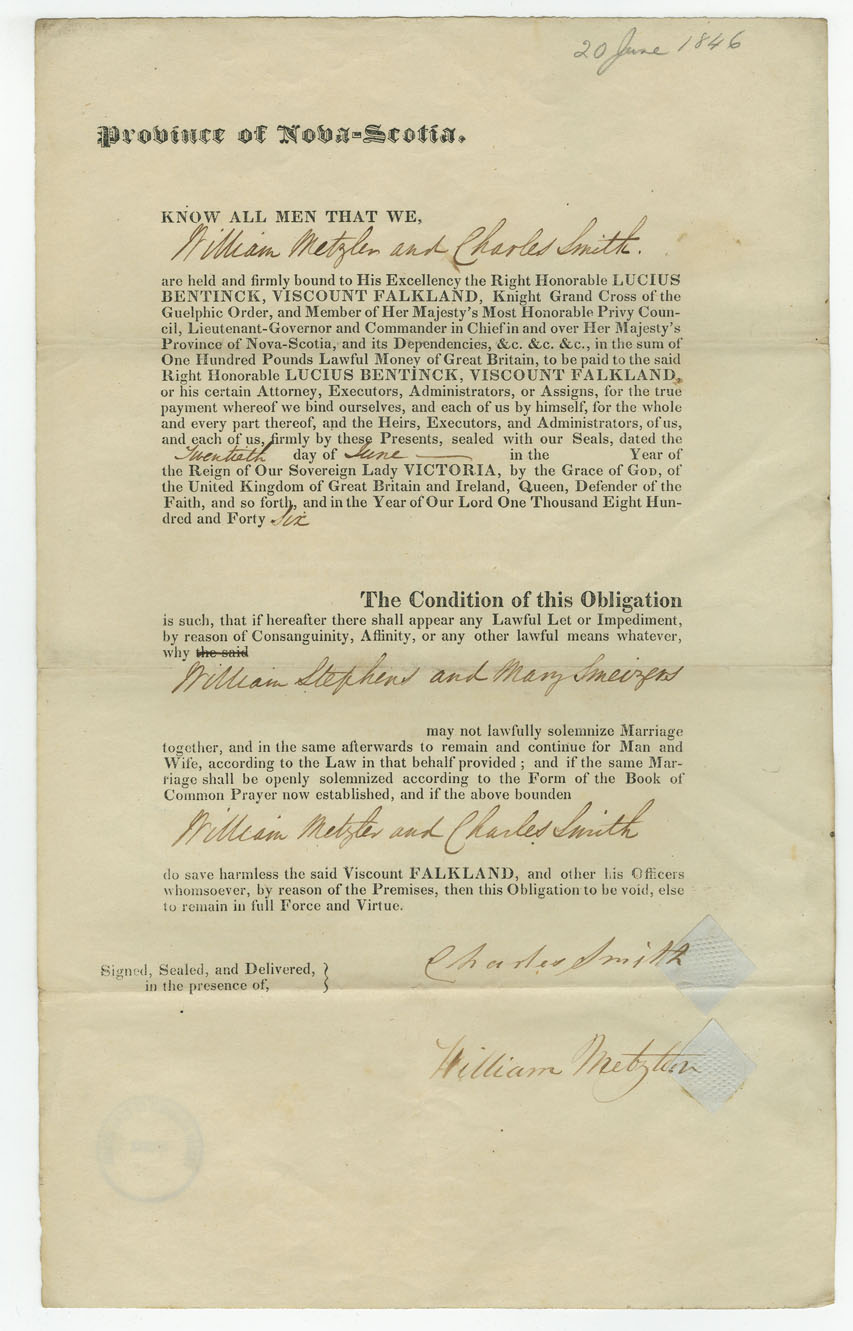 20 June 1846
Province of Nova-Scotia.
KNOW ALL MEN THAT WE,
William Metzler and Charles Smith.
are held and firmly bound to His Excellency the Right Honorable LUCIUS
BENTINCK, VISCOUNT FALKLAND, Knight Grand Cross of the
Guelphic Order, and Member of Her Majesty's Most Honorable Privy Coun-
cil, Lieutenant-Governor and Commander in Chief in and over Her Majesty's
Province of Nova-Scotia, and its Dependencies, &c. &c. &c., in the sum of
One Hundred Pounds Lawful Money of Great Britain, to be paid to the said
Right Honorable LUCIUS BENTINCK, VISCOUNT FALKLAND,
or his certain Attorney, Executors, Administrators, or Assigns, for the true
payment whereof we bind ourselves, and each of us by himself, for the whole
and every part thereof, and the Heirs, Executors, and Administrators, of us,
and each of us, firmly by these Presents, sealed with our Seals, dated the
Twentieth day of June — in the Year of
the Reign of Our Sovereign Lady VICTORIA, by the Grace of GOD, of
the United Kingdom of Great Britain and Ireland, Queen, Defender of the
Faith, and so forth, and in the Year of Our Lord One Thousand Eight Hun-
dred and Forty Six
The Condition of this Obligation
is such, that if hereafter there shall appear any Lawful Let or Impediment,
by reason of Consanguinity, Affinity, or any other lawful means whatever,
why the said
William Stephens and Mary Smeizers
may not lawfully solemnize Marriage
together, and in the same afterwards to remain and continue for Man and
Wife, according to the Law in that behalf provided ; and if the same Mar-
riage shall be openly solemnized according to the Form of the Book of
Common Prayer now established, and if the above bounden
William Metzler and Charles Smith
do save harmless the said Viscount FALKLAND, and other his Officers
whomsoever, by reason of the Premises, then this Obligation to be void, else
to remain in full Force and Virtue.
Charles Smith
Signed, Sealed, and Delivered,
in the presence of,
William Metzler